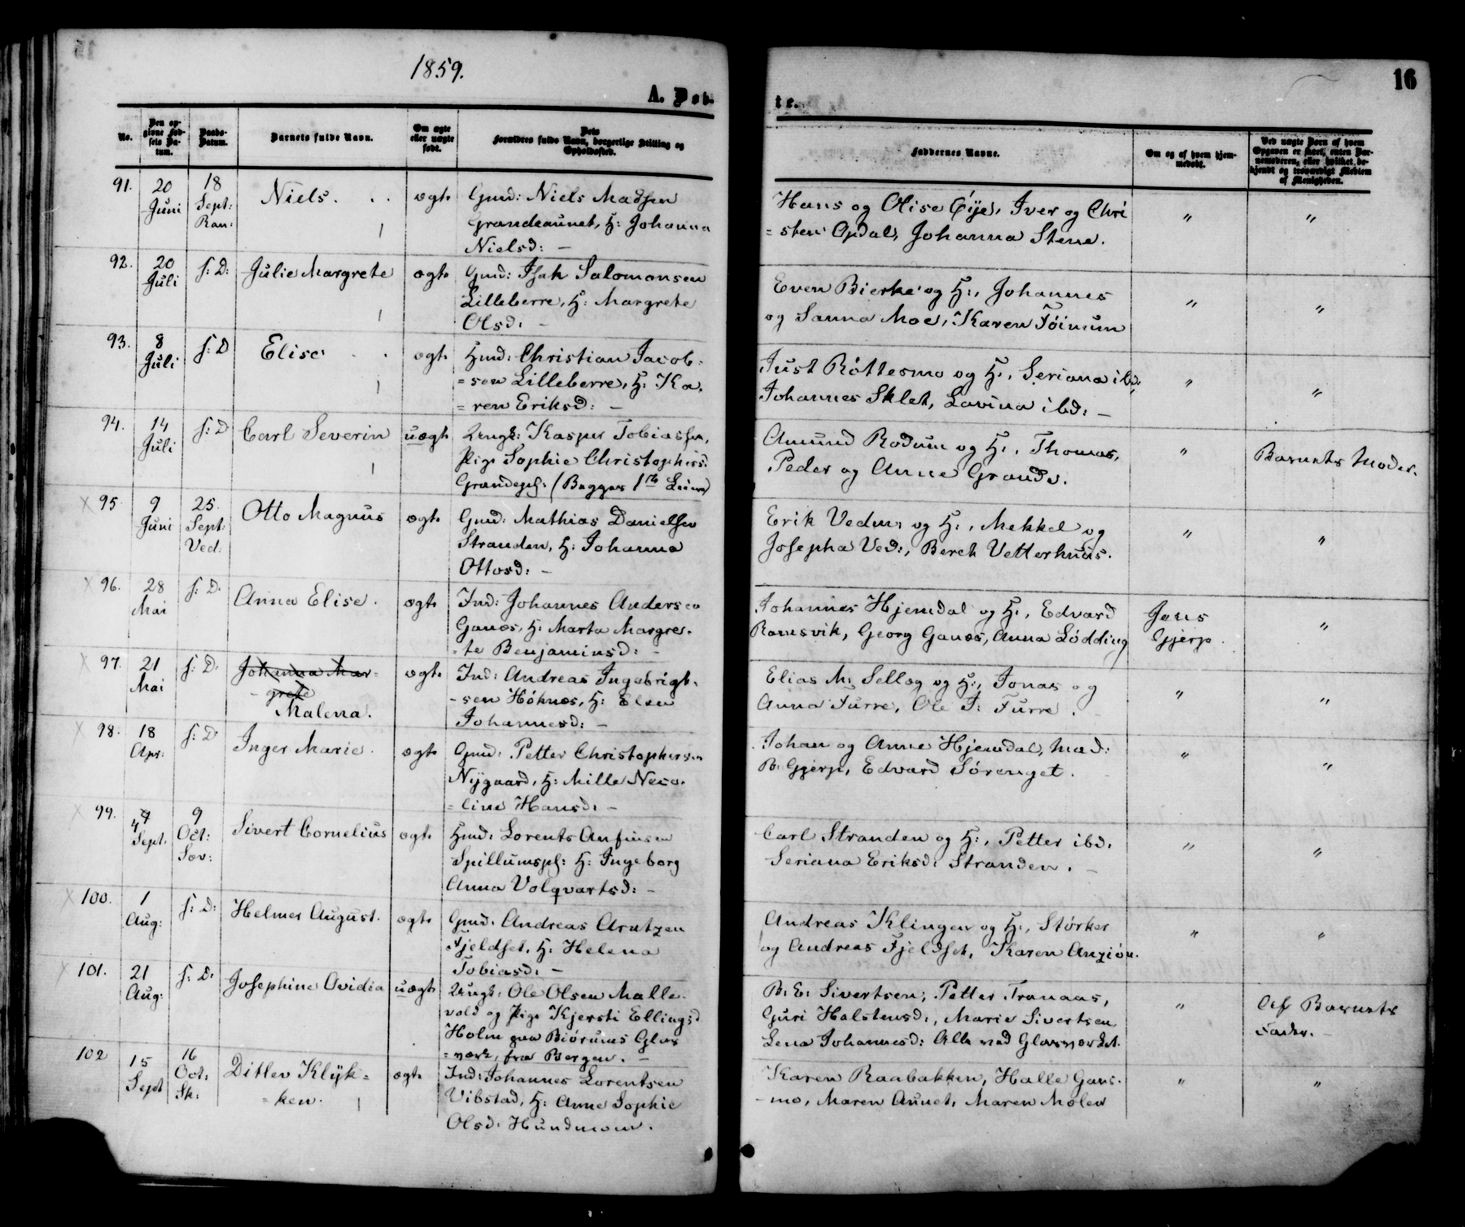 1859.
16
A. Døb-
te.
No.
Den opgivne Fødsels Datum.
Daabs-Datum.
Barnets fulde Navn.
Om ægte eller uægte født.
Dets Forældres fulde Navn, borgerlige Stilling og Opholdssted.
Faddernes Navne.
Om og af hvem hjemmedøbt.
91. 20 Juni 18 Sept: Ran: Niels. ægte Gmd: Niels Madsen
Grandeaunet, H: Johanna
Nielsd: —
Hans og Olise Øije, Iver og Chri
=sten Opdal, Johanna Stene. " "
92. 20 Juli s: D: Julie Margrete ægte Gmd: Isak Salomonsen
Lilleberre, H: Margrete
Olsd: —
Even Bierke og H:, Johannes
og Sanna Moe, Karen Föinum " "
93. 8 Juli s: D Elise ægte Hmd: Christian Jacob-
=sen Lilleberre, H: Ka-
=ren Eriksd: —
Just Röttesmo og H:, Seriana ibd:
Johannes Sklet, Lavina ibd: — " "
94. 14 Juli s: D Carl Severin uægte Ungk: Kasper Tobiassen,
Pige Sophie Christophersd:
Grandepl: (Begges 1ste Leierm)
Amund Rodum og H:, Thomas,
Peder og Anne Grande. " Barnets Moder.
95. 9 Juni 25. Sept: Ved: Otto Magnus ægte Gmd: Mathias Danielsen
Stranden, H: Johanna
Ottosd: —
Erik Vedum og H:, Mekkel og
Josepha Ved:, Bereh Vetterhuus. " "
96. 28 Mai s: D. Anna Elise. ægte Ind: Johannes Andersen
Ganæs, H: Marta Margre-
=te Benjaminsd: —
Johannes Hjemdal og H:, Edvard
Ramsvik, Georg Ganæs, Anna Lödding Jens Gjerp. "
97. 21 Mai s: D. Johanna Mar=
grete
Malena. ægte Ind: Andreas Ingebrigt-
-sen Höknæs, H: Elen
Johannesd: —
Elias M: Sellæg og H:, Jonas og
Anna Furre, Ole J: Furre. " "
98. 18 Apr: s: D Inger Marie. ægte Gmd: Petter Christophersen
Nygaard, H: Mille Nico-
=line Hansd: —
Johan og Anne Hjemdal, Mad:
B: Gjerp, Edvard Sörenget. " "
99. 4 Sept. 9 Oct: Sev: Sivert Cornelius ægte Hmd: Lorents Anfinsen
Spillumspl: H: Ingeborg
Anna Volqvartsd: —
Carl Stranden og H:, Petter ibd.
Seriana Eriksd: Stranden. — " "
100. 1 Aug: s: D: Helmer August. ægte Gmd: Andreas Arntzen
Fjeldset, H: Helena
Tobiasd: —
Andreas Klingen og H:, Störker
og Andreas Fjeldset, Karen Anziön. " "
101. 21 Aug: s: D: Josephine Ovidia uægte Ungk: Ole Olsen Malle-
vold og Pige Kjersti Ellingsd
Holm paa Biörums Glas
=værk, fra Bergen. —
B. E: Sivertsen, Petter Tranaas,
Guri Halstensd:, Marie Sivertsen
Lena Johannesd: Alle ved Glasværket. " Af Barnets
Fader. —
102 15 Sept 16 Oct: Sk: Ditlev Klÿk=
=ken. ægte Ind: Johannes Lorentsen
Vibstad, H: Anne Sophie
Olsd: Hundmoen.
Karen Raabakken, Halle Gans-
-mo, Maren Aunet, Maren Molen " "